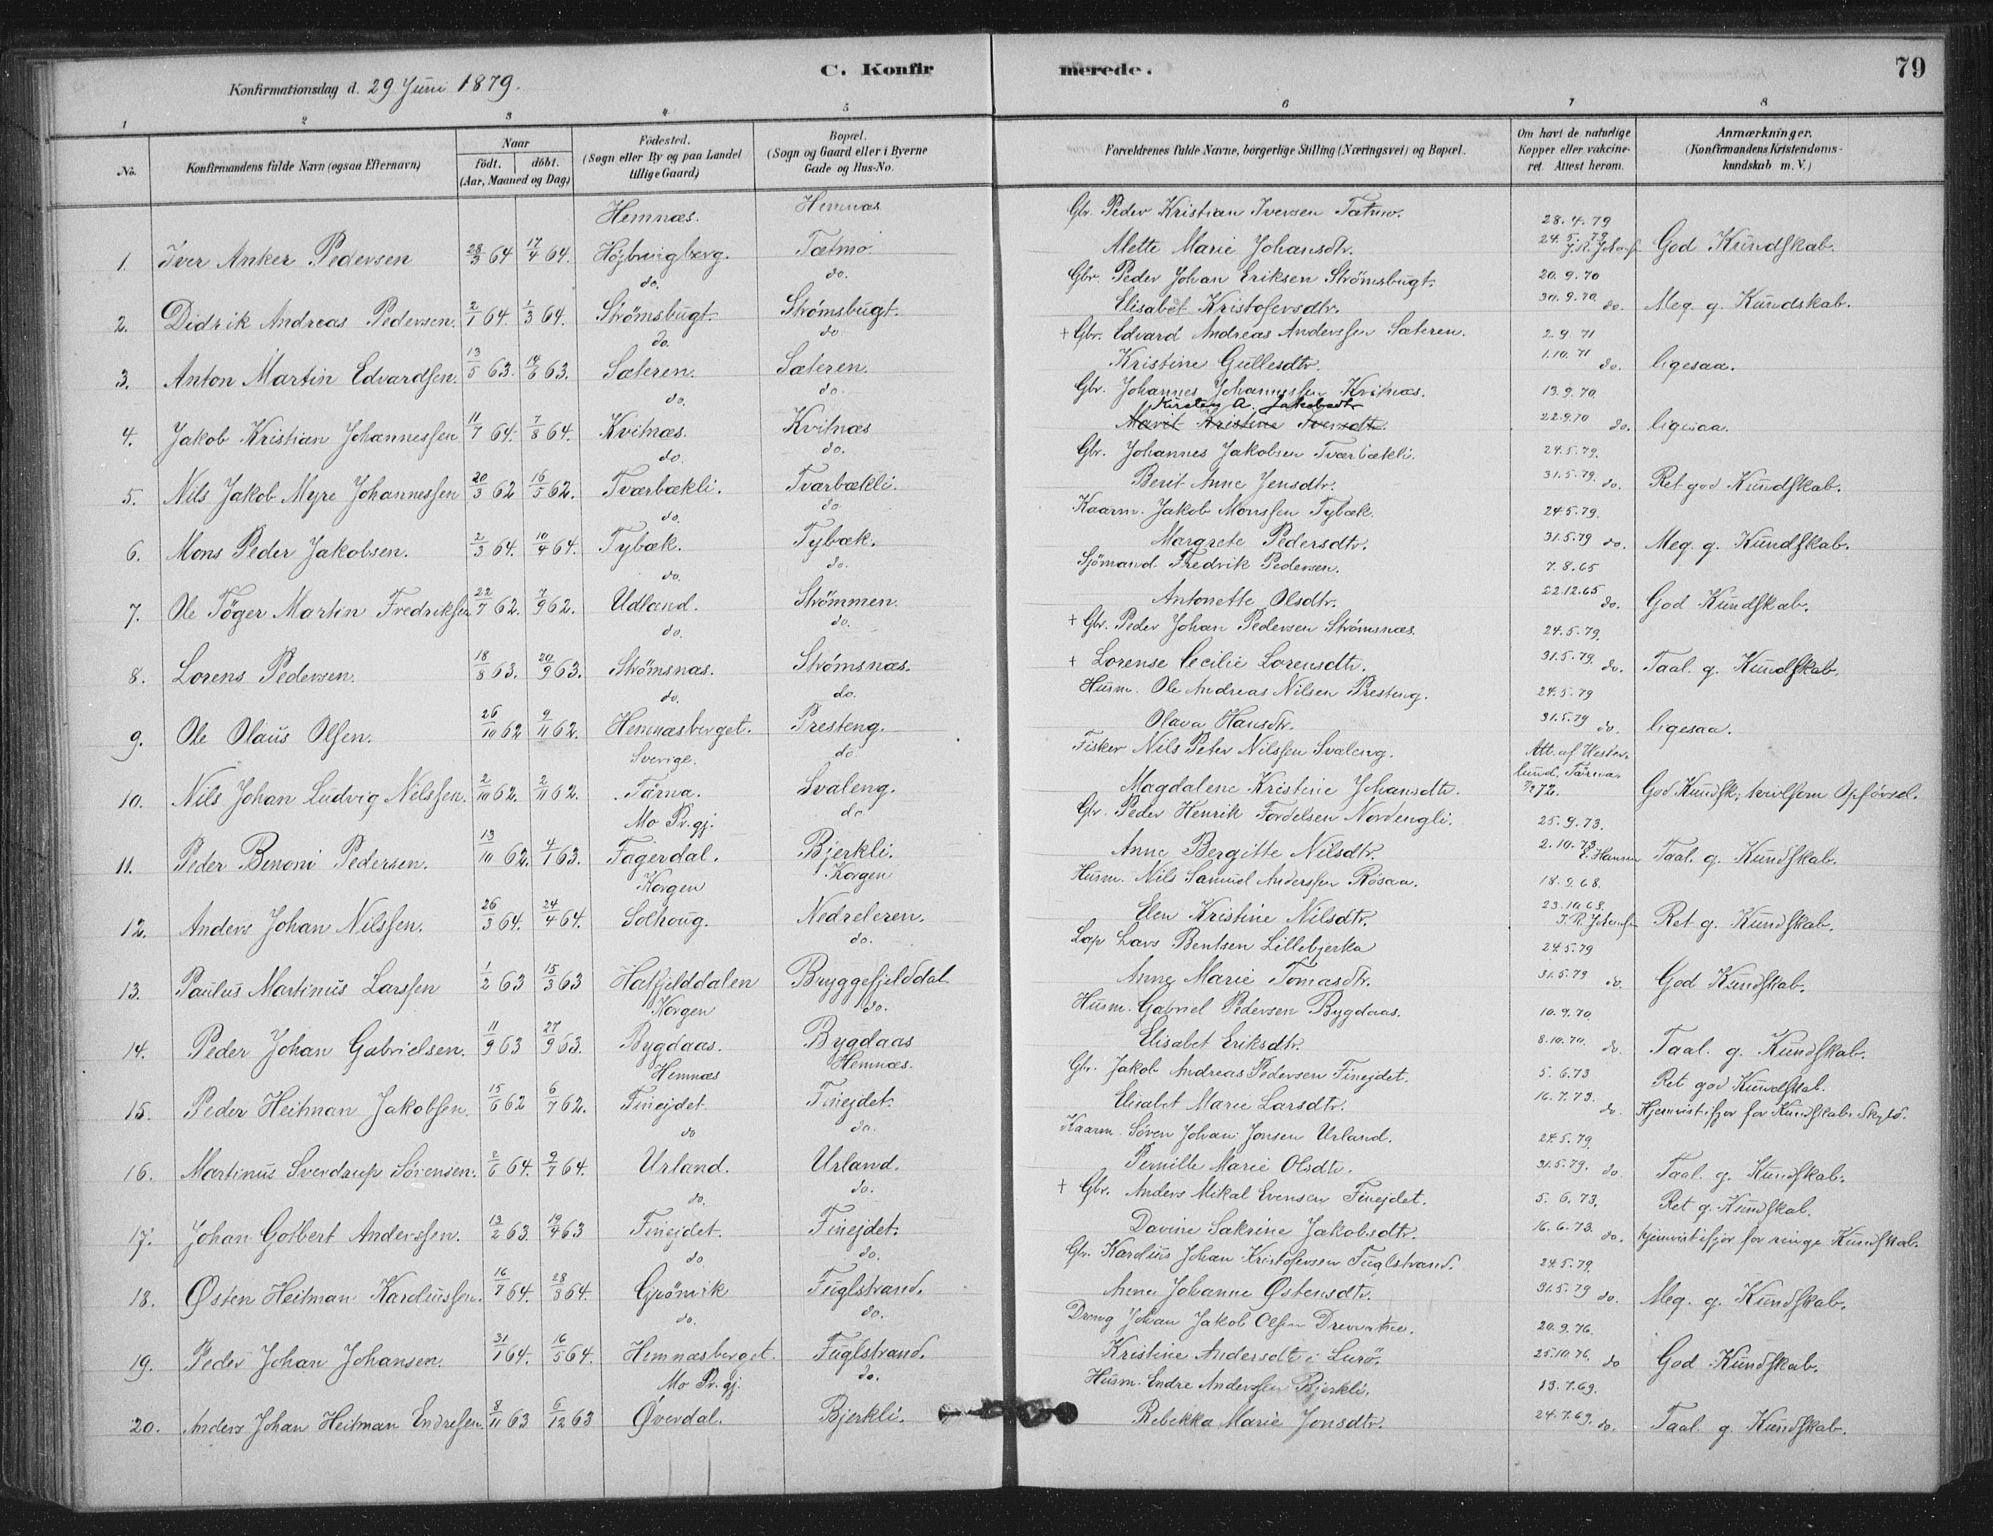 C. Konfirmerede. 79
Konfirmationsdag d. 29 Juni 1879.
1 2 3 4 5 6 7 8
No. Konfirmandens fulde Navn (ogsaa Efternavn) Naar födt. döbt. (Aar, Maaned og Dag) Födested. (Sogn eller By og paa Landet tillige Gaard) Bopæl. (Sogn og Gaard eller i Byerne Gade og Hus-No. Forældrenes fulde Navne, borgerlige Stilling (Næringsvei) og Bopæl. Om havt de naturlige Kopper eller vakcineret. Attest herom. Anmærkninger. (Konfirmandens Kristendomskundskab m. V.)
Hemnæs. Hemnæs Gbr. Peder Kristian Iversen Tætmo. 28.4.79
1. Iver Anker Pedersen 28/3 64 17/4 64. Højbringberg. Tætmo. Mette Marie Johansdtr. 24.5.79 God Kundskab.
do. do. Gbr. Peder Johan Eriksen Strømsbugt. 20.9.70
2. Didrik Andreas Pedersen. 2/1 64. 1/3 64. Strømsbugt. Strømsbugt. Elisabet Kristofersdtr. 30.9.70. do. Meg. g. Kundskab.
do. do. + Gbr. Edvard Andreas Anderssen Sæteren. 2.9.71
3. Anton Martin Edvardsen. 13/5 63. 14/6 63. Sæteren. Sæteren. Kristine Gullesdtr. 1.10.71 do. ligesaa.
do. do. Gbr. Johannes Johannessen Kvitnæs. 19.9.70.
Kirsten A. Jakobsdtr
4. Jakob Kristian Johannessen 11/7 64. 7/8 64. Kvitnæs. Kvitnæs Marit Kristine Iversdtr. 22.9.70 do. ligesaa.
do. do. Gbr. Johannes Jakobsen Tværbækli. 24.5.79.
5. Nils Jakob Myre Johannessen 20/3 62 16/5 62. Tværbækli. Tværbækli. Berit Anne Jensdtr. 31.5.79. do. Ret god Kundskab.
do. do. Kaarm. Jakob Monssen Tybæk. 24.5.79.
6. Mons Peder Jakobsen. 2/3 64. 10/4 64. Tybæk. Tybæk. Margrete Pedersdtr. 31.5.79 do. Meg. g. Kundskab.
do. do. Sjömand Fredrik Pedersen. 7.8.65
7. Ole Töger Martin Fredriksen 22/7 62. 7/9 62. Udland. Strømmen. Antonette Olsdtr. 22.12.65 do. God Kundskab.
do. do. + Gbr. Peder Johan Pedersen Strömsnæs. 24.5.79.
8. Lorens Pedersen. 18/8 63. 20/9 63. Strömsnæs. Strömsnæs. + Lorense Cecilie Lorensdtr. 31.5.79. do. Taal. g. Kundskab.
do. do. Husm. Ole Andreas Nilsen Presteng. 24.5.79
9. Ole Olaus Olsen. 26/10 62 9/11 62. Hemnæsberget. Presteng. Olava Hansdtr. 31.5.79 do. ligesaa.
Sverige. do. Fisker Nils Peter Nilssen Svaleng. Att. af Wester-
10. Nils Johan Ludvig Nilssen. 2/10 62. 2/11 62. Tärna. Svaleng. Magdalene Kristine Johansdtr. lund, Tärna 72. God Kundsk., tvilsom Opførsel.
Mo Pr.gj. do Gbr. Peder Henrik Fordelsen Nordengli. 25.9.73.
11. Peder Benoni Pedersen. 13/10 62. 4/1 63. Fagerdal. Bjerkli. Anne Bergitte Nilsdtr. 2.10.73 E. Hansen Taal. g. Kundskab.
Korgen Korgen Husm. Nils Samuel Anderssen Røsaa. 18.9.68.
12. Anders Johan Nilssen. 26/3 64. 24/4 64. Solhoug. Nedreleren. Elen Kristine Nilsdtr. 23.10.68. Ret g. Kundskab.
do. Lap Lars Bentsen Lillebjerka 24.5.79
13. Paulus Martinus Larssen 1/2 63 15/3 63 Hatfjelddalen Bryggefjelddal Anne Marie Tomasdtr. 31.5.79 do. God Kundskab.
Korgen do. Husm. Gabriel Pedersen Bygdaas. 10.9.70.
14. Peder Johan Gabrielsen. 11/9 63 27/9 63. Bygdaas. Bygdaas Elisabet Eriksdtr. 8.10.70. do. Taal. g. Kundskab.
Hemnæs Hemnæs. Gbr. Jakob Andreas Pedersen Finejdet. 5.6.73 Ret god Kundskab.
15. Peder Heitman Jakobsen. 15/6 62 6/7 62. Finejdet. Finejdet. Elisabet Marie Larsdtr. 16.7.73. do. Hjemvist ifjor for Kundskabs Skyld.
do do. Kaarm. Søren Johan Jonsen Urland. 24.5.79.
16. Martinus Sverdrup Sörensen. 2/6 64. 9/7 64. Urland. Urland. Pernille Marie Olsdtr. 31.5.79. do. Taal. g. Kundskab.
do. do. + Gbr. Anders Mikal Evensen Finejdet. 5.6.73. Ret g. Kundskab.
17. Johan Gotbert Anderssen. 13/2 63. 19/4 63 Finejdet. Finejdet. Davine Sakrine Jakobsdtr. 16.6.73. do. hjemvist ifjor for ringe Kundskab.
do do. Gbr. Kardius Johan Kristofersen Fuglstrand. 24.5.79.
18. Østen Heitman Kardiussen. 16/7 64. 28/8 64. Grönvik Fuglstrand. Anne Johanne Østensdtr. 31.5.79 do. Meg. g. Kundskab.
do. do. Dreng Johan Jakob Olsen 20.9.76.
19. Peder Johan Johansen. 31/1 64. 16/5 64. Hemnæsberget. Fuglstrand. Kristine Andersdtr i Lurö. 25.10.76. do God Kundskab.
Mo Pr. gj. do. Husm. Endre Anderssen Bjerkli. 13.7.69.
20. Anders Johan Heitman Endresen. 8/11 63 6/12 63 Øverdal. Bjerkli. Rebekka Marie Jonsdtr. 24.7.69. do. Taal. g. Kundskab.